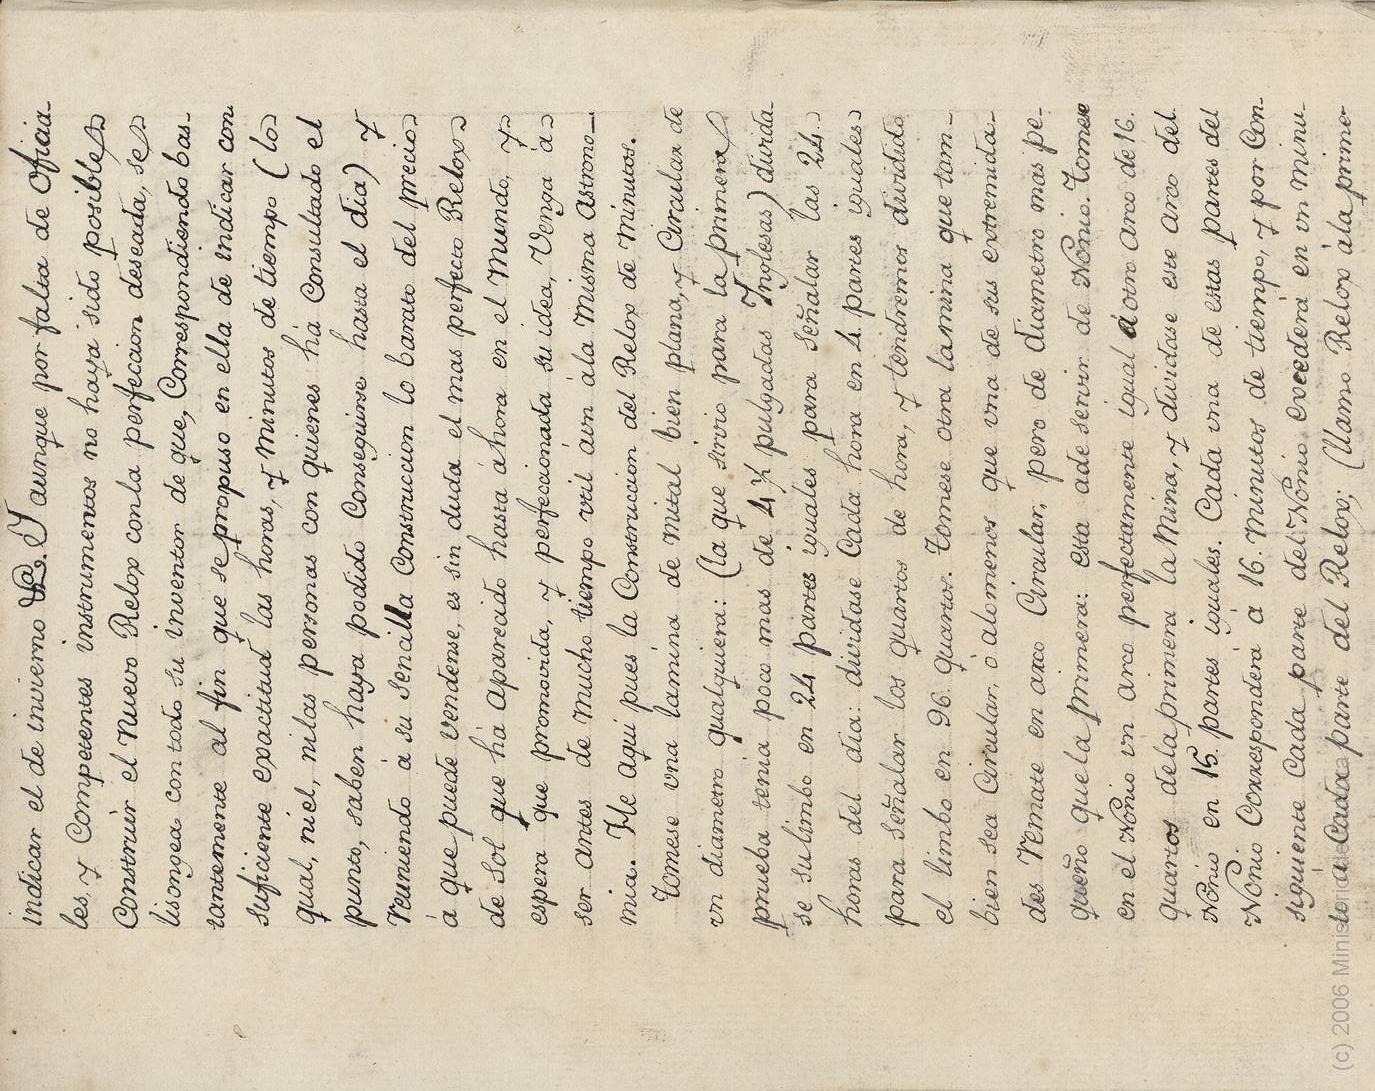 indicar el de invierno &a. Y aunque por falta de oficia-
les y Competentes instrumentos no haya sido posible
Construir el nuevo Relox con la perfeccion deseada, se
lisongea con todo su inventor de que, Correspondiendo bas-
tantemente al fin que se propuso en ella de indicar con
suficiente exactitud las horas, y minutos de tiempo (lo
qual, ni el, ni las personas con quienes há Consultado el
punto, saben haya podido Conseguirse hasta el dia) y
reuniendo á su sencilla Construccion lo barato del precio
á que puede vendense, es sin duda el mas perfecto Relox
de Sol que há aparecido hasta áhora en el Mundo, y
espera que promovida, y perfeccionada su idea, Venga á
ser antes de mucho tiempo util áun ála misma Astrono-
mia. He aqui pues la Construccion del Relox de minutos.
Tomese vna lamina de Mital bien plana, y Circular de
vn diametro qualquiera: (la que sirvio para la primera
prueba tenia poco mas de 4 ½ pulgadas Inglesas) divida-
se su limbo en 24 partes iguales para señalar las 24
horas del dia: dividase Cada hora en 4. partes iguales
para señalar los quartos de hora, y tendremos dividido
el limbo en 96. quartos. Tomese otra lamina que tam-
bien sea Circular, ó alomenos que vna de sus extremida-
des remate en arco Circular, pero de diametro mas pe-
queño que la primera: esta ade servir de Nonio. Tomese
en el Nonio vn arco perfectamente igual á otro arco de 16.
quartos dela primera la Mina, y dividase este arco del
Nonio en 15 partes iguales. Cada vna de estas partes del
Nonio Corresponderá á 16. minutos de tiempo, y por Con-
siguiente Cada parte del Nonio excederá en vn minu-
to á Cada parte del Relox; (llamo Relox ála prime-
(c) 2006 Minis